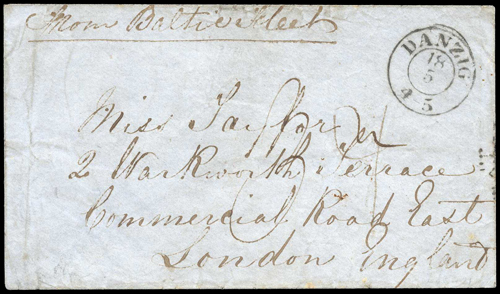 From Baltic Fleet
DANZIG
18
5
4 5
Miss
2 Warkworth Terrace
Commercial Road East
London England